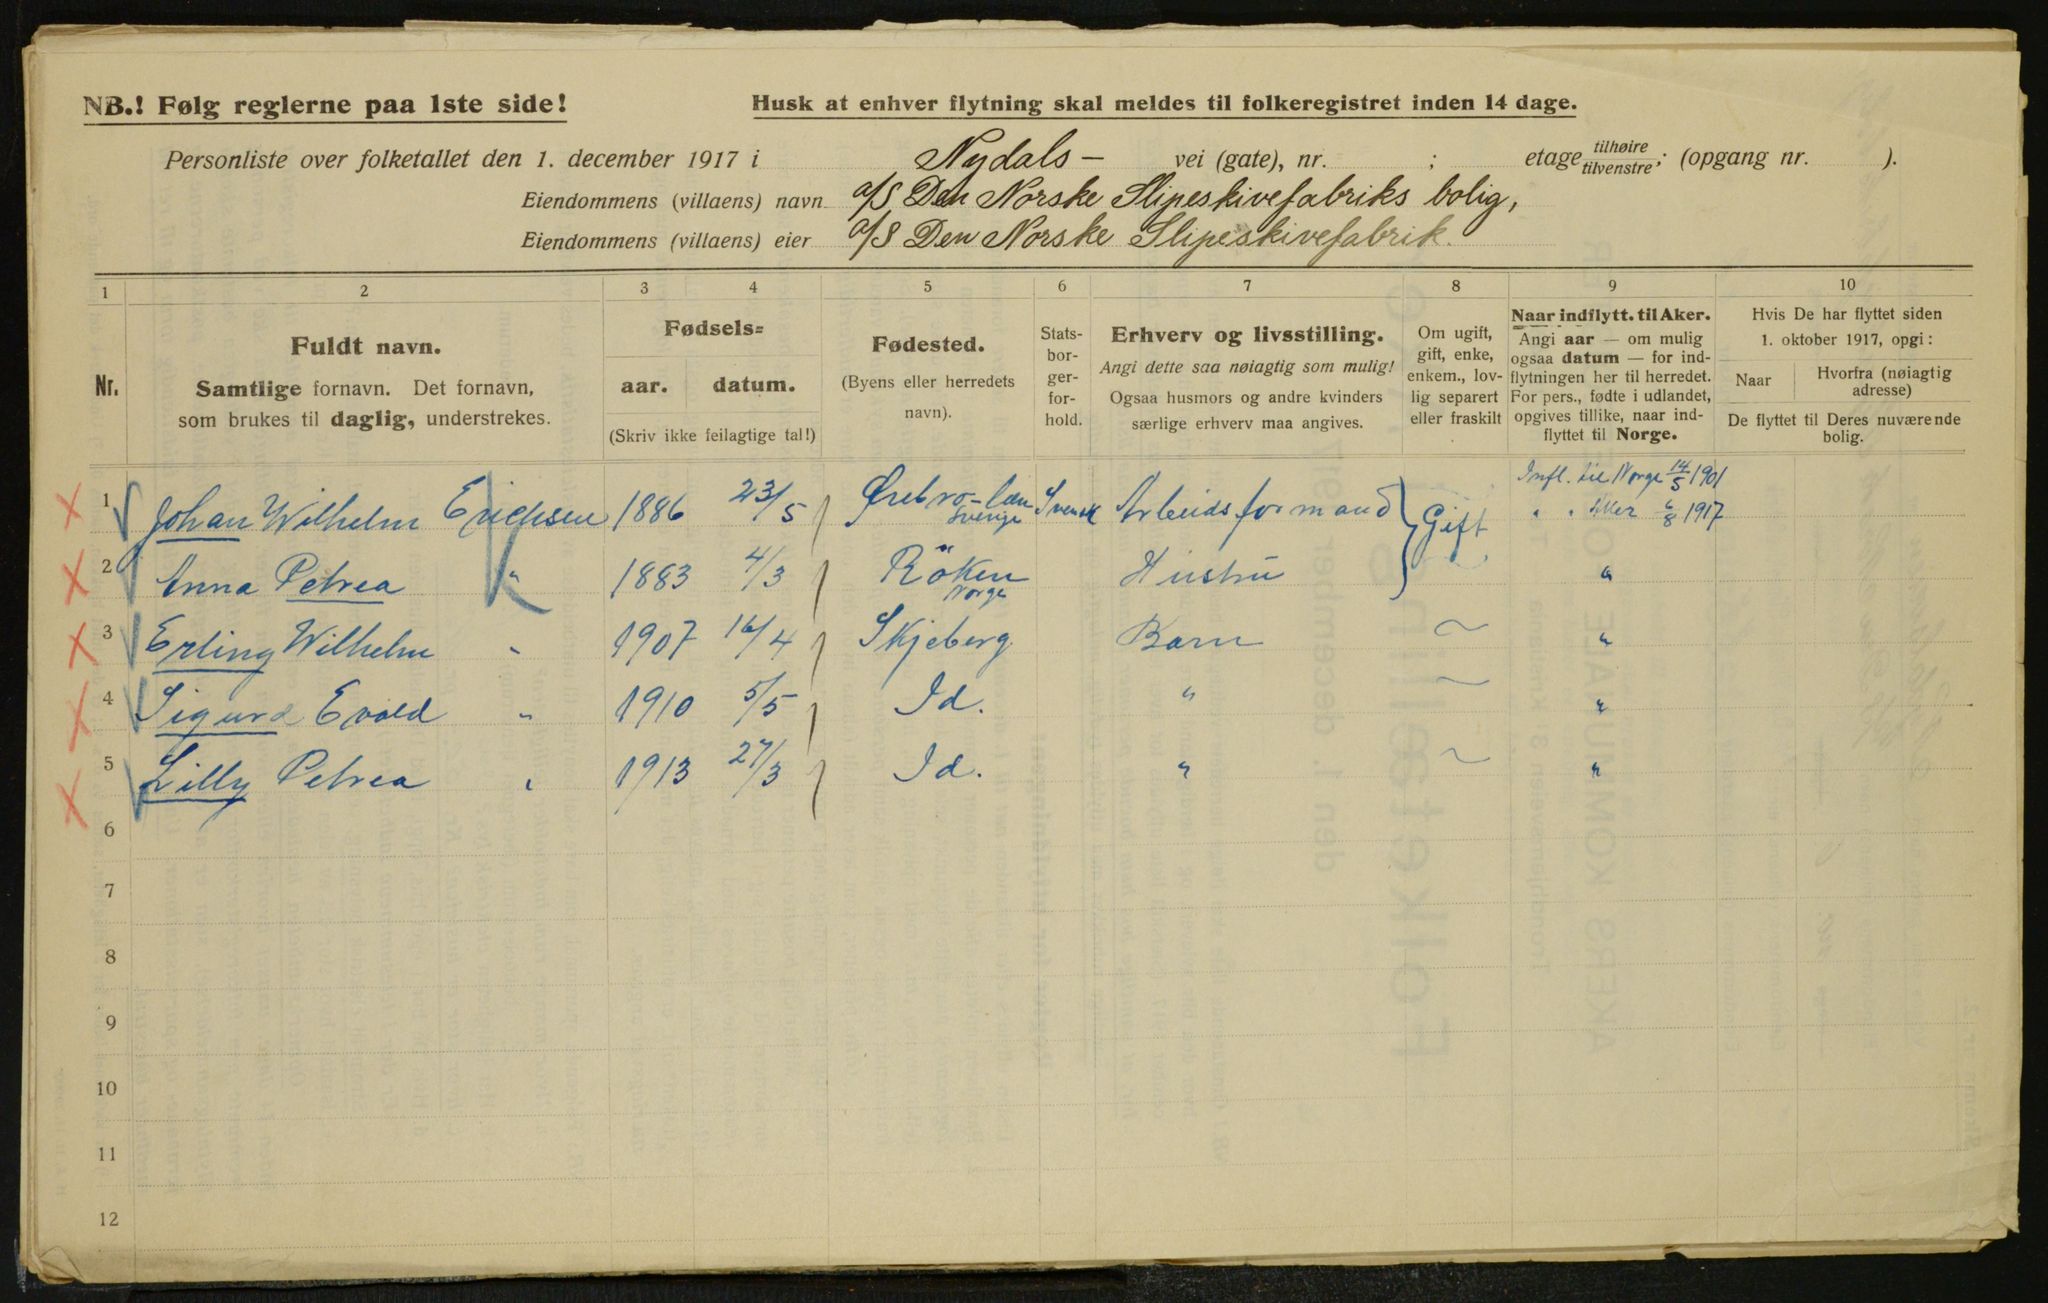 NB.! Følg reglerne paa 1ste side!
Husk at enhver flytning skal meldes til folkeregistret inden 14 dage.
Personliste over folketallet den 1. december 1917 i Nydals- vei (gate), nr. ; etage tilhøire tilvenstre; (opgang nr. ).
Eiendommens (villaens) navn a/S Den Norske Slipeskivefabriks bolig,
Eiendommens (villaens) eier a/S Den Norske Slipeskivefabrik.
1 2 3 4 5 6 7 8 9 10
Nr.
Fuldt navn.
Samtlige fornavn. Det fornavn,
som brukes til daglig, understrekes.
Fødsels=
aar. datum.
(Skriv ikke feilagtige tal!)
Fødested.
(Byens eller herredets
navn).
Stats-
bor-
ger-
for-
hold.
Erhverv og livsstilling.
Angi dette saa nøiagtig som mulig!
Ogsaa husmors og andre kvinders
særlige erhverv maa angives.
Om ugift,
gift, enke,
enkem., lov-
lig separert
eller fraskilt
Naar indflytt. til Aker.
Angi aar — om mulig
ogsaa datum — for ind-
flytningen her til herredet.
For pers., fødte i udlandet,
opgives tillike, naar ind-
flyttet til Norge.
Hvis De har flyttet siden
1. oktober 1917, opgi:
Naar
Hvorfra (nøiagtig
adresse)
De flyttet til Deres nuværende
bolig.
1 Johan Wilhelm Erichsen 1886 23/5 Örebro-län Sverige Svensk Arbeidsformand Gift Infl. til Norge 14/5 1901
" " Aker 6/8 1917
2 Anna Petrea " 1883 4/3 Röken Norge Hustru "
3 Erling Wilhelm " 1907 16/4 Skjeberg Barn ~ "
4 Sigurd Evald " 1910 5/5 Id. " ~ "
5 Lilly Petrea " 1913 27/3 Id. " ~ "
6
7
8
9
10
11
12